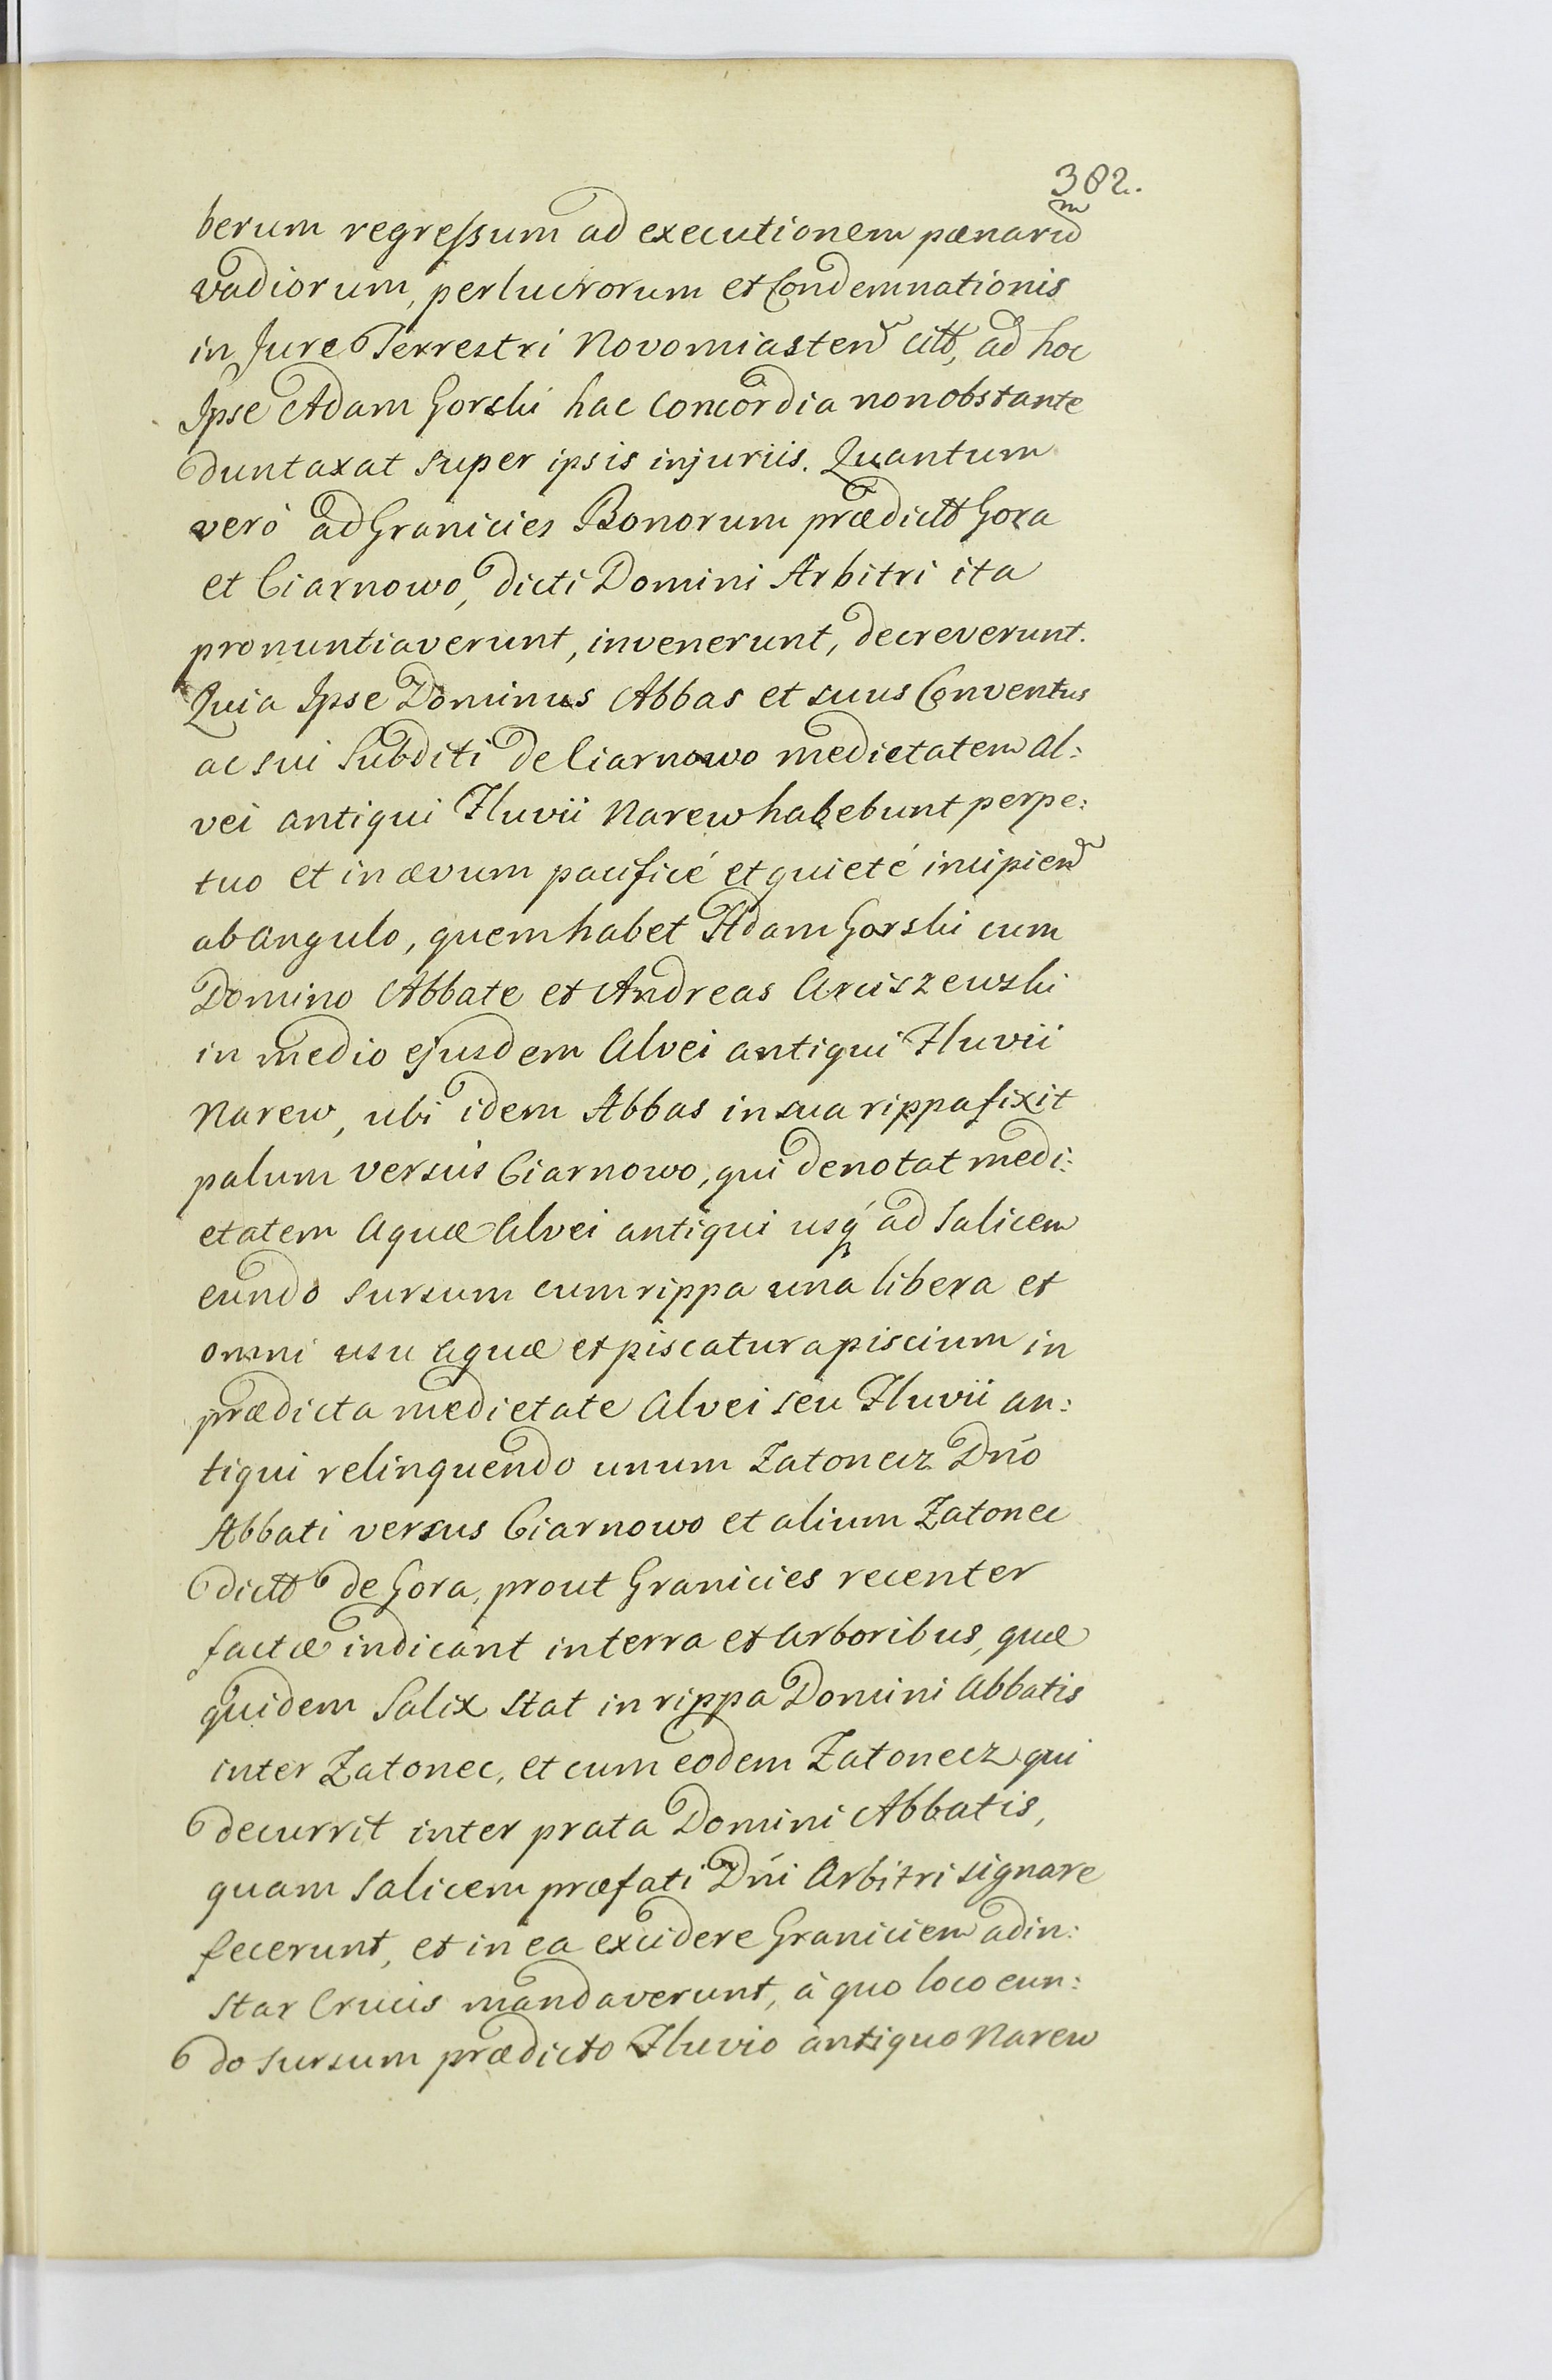 382.
berum regressum ad executionem pænarũ
vadiorum, perlucrorum et Condemnationis
in Jure Terrestri Novomiasten̄ citt, ad hoc
Ipse Adam Gorski hac Concordia nonobstante
duntaxat super ipsis injuriis. Quantum
verò ad Granicies Bonorum prædictt Gora
et Ciarnowo, dicti Domini Arbitri ita
pronuntiaverunt, invenerunt, decreverunt.
Quia Ipse Dominus Abbas et suus Conventus
ac sui Subditi de Ciarnowo medietatem al:
vei antiqui Fluvii Narew habebunt perpe:
tuo et in ævum pacificé et quieté incipien̄
ab angulo, quem habet Adam Gorski cum
Domino Abbate et Andreas Arciszewski
in medio ejusdem Alvei antiqui Fluvii
Narew, ubi idem Abbas in sua rippa fixit
palum versus Ciarnowo, qui denotat medi:
etatem Aquæ Alvei antiqui usq́ ad Salicem
eundo sursum cum rippa una libera et
omni usu aquæ et piscatura piscium in
prædicta medietate Alvei seu Fluvii an:
tiqui relinquendo unum Zatonecz Dńo
Abbati versus Ciarnowo et alium Zatonec
dictt de Gora, prout Granicies recenter
factæ indicant in terra et Arboribus, quæ
quidem Salix stat in rippa Domini Abbatis
inter Zatonec, et cum eodem Zatonecz qui
decurrit inter prata Domini Abbatis,
quam Salicem præfati Dńi Arbitri signare
fecerunt, et in ea excidere Graniciem adin:
star Crucis mandaverunt, à quo loco eun:
do sursum prædicto Fluvio antiquo Narew